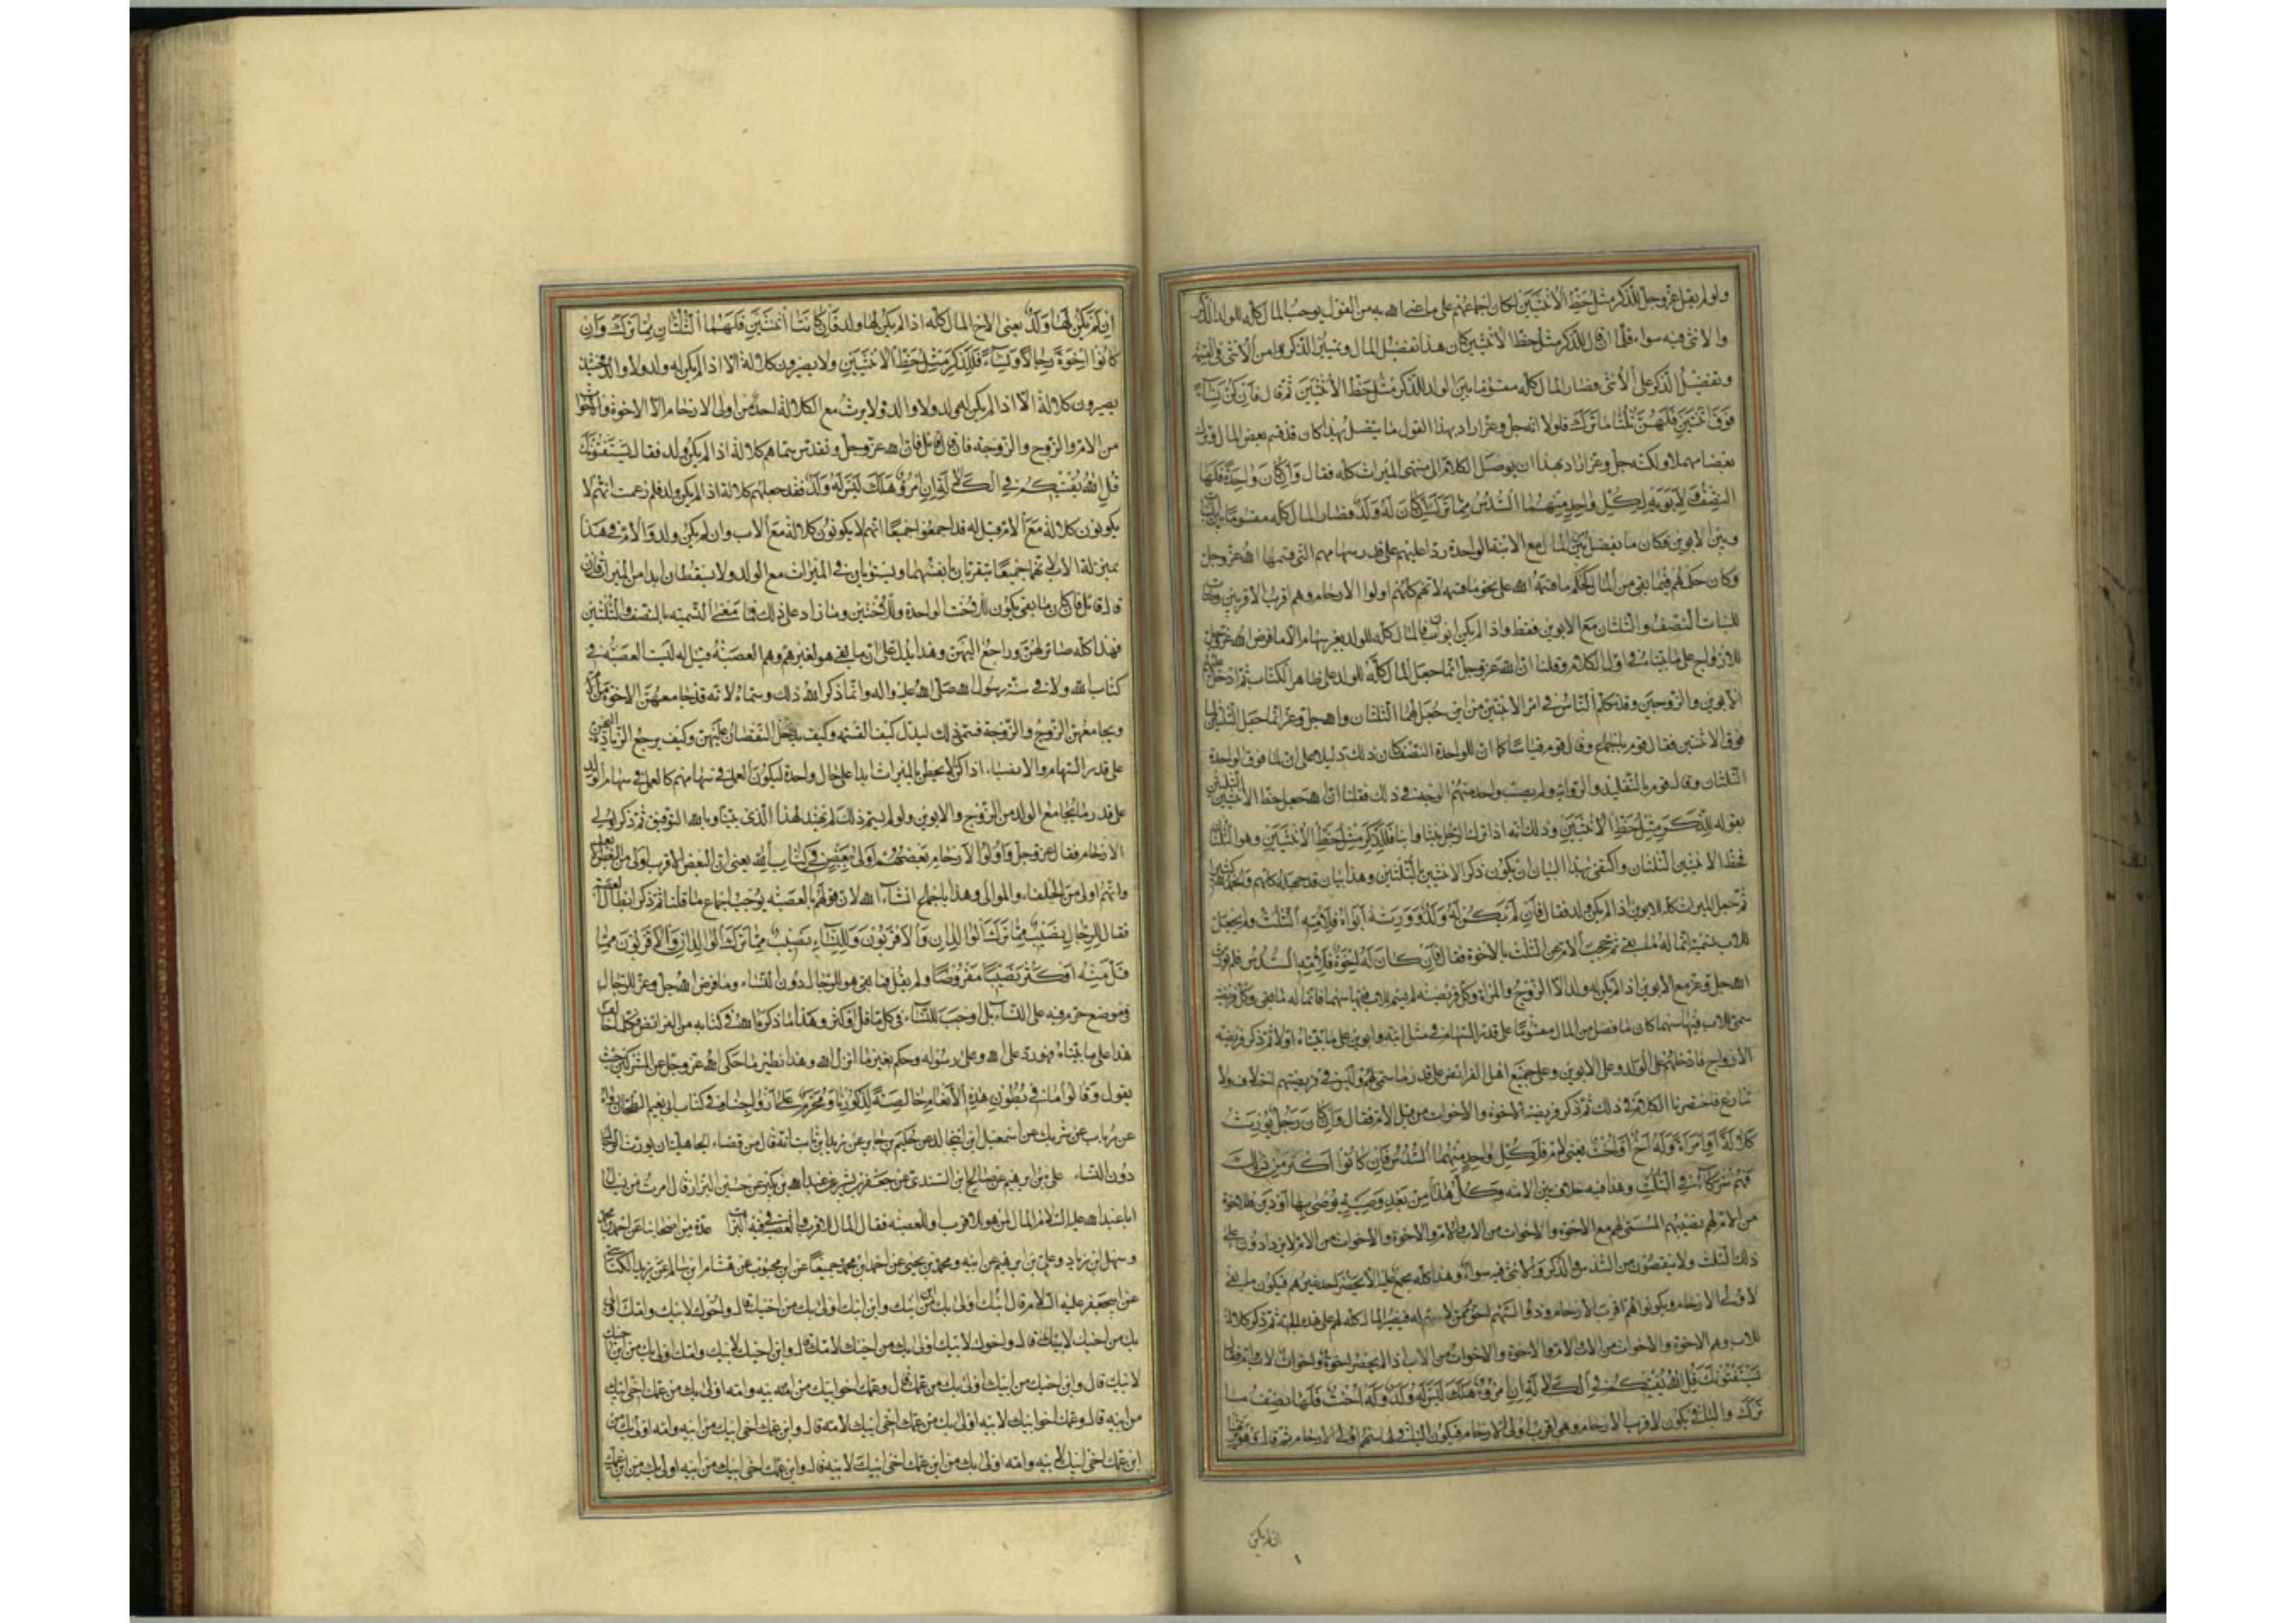 ولو لم يقل عز وجل للذكر مثل حظ الأنثيين لكان اجماعهم على ما عنى الله به من القول يوجب المال كله للولد الذكر
والانثى فيه سواء فلما ان قال للذكر مثل حظ الأنثيين كان هذا تفضيل المال وتمييز الذكر من الأنثى في القسمة
وتفضيل الذكر على الأنثى فصار المال كله مقسوما بين الولد للذكر مثل حظ الأنثيين ثم قال فإن كن نساء
فوق اثنتين فلهن ثلثا ما ترك فلولا انه جل وعز اراد بهذا القول ما يتصل بهذا كان قد قسم بعض المال وترك
بعضا مهملا ولكنه جل وعز اراد بهذا ان يوصل الكلام الى منتهى الميراث كله فقال وإن كانت واحدة فلها
النصف ولأبويه لكل واحد منهما السدس مما ترك إن كان له ولد فصار المال كله مقسوما بين البنات
وبين الابوين فكان ما يفضل من المال مع الابنة الواحدة ردا عليهم على قدر سهامهم التى قسمها الله عز وجل
وكان حكمهم فيما بقى من المال كحكم ما قسمه الله على نحو ما قسمه لانهم كلهم اولوا الارحام وهم اقرب الاقربين وصارت
للبنات النصف والثلثان مع الابوين فقط واذا لم يكن ابوان فالمال كله للولد بغير سهام الا ما فرض الله عز وجل
للازواج على ما بيناه في اول الكلام وقلنا ان الله عز وجل انما جعل المال كله للولد على ظاهر الكتاب ثم ادخل عليهم
الابوين والزوجين وقد تكلم الناس في امر الابنتين من اين جعل لهما الثلثان والله جل وعز انما جعل الثلثين لما
فوق الاثنتين فقال قوم باجماع وقال قوم قياسا كما ان للواحدة النصف كان ذلك دليلا على ان لما فوق الواحدة
الثلثان وقال قوم بالتقليد والرواية ولم يصب واحد منهم الوجه في ذلك فقلنا ان الله جعل حظ الأنثيين الثلثين
بقوله للذكر مثل حظ الأنثيين وذلك انه اذا ترك الرجل بنتا وابنا فللذكر مثل حظ الأنثيين وهو الثلثان
فحظ الانثيين الثلثان واكتفى بهذا البيان ان يكون ذكر الانثيين بالثلثين وهذا بيان قد جهله كلهم والحمد لله كثيرا
ثم جعل الميراث كله للابوين اذا لم يكن ولد فقال فإن لم يكن له ولد وورثه أبواه فلأمه الثلث ولم يجعل
للاب تسمية انما له ما بقى ثم حجب الام عن الثلث بالاخوة فقال فإن كان له إخوة فلأمه السدس فلم يورث
الله جل وعز مع الابوين اذا لم يكن له ولد الا الزوج والمراة وكل فريضة لم يسم للاب فيها سهما فانما له ما بقى وكل فريضة
سمى للاب فيها سهما كان ما فضل من المال مقسوما على قدر السهام في مثل ابنة وابوين على ما بيناه اولا ثم ذكر فريضة
الازواج فادخلهم على الولد وعلى الابوين وعلى جميع اهل الفرائض على قدر ما سمى لهم وليس في فريضتهم اختلاف ولا
تنازع فاختصرنا الكلام في ذلك ثم ذكر فريضة الاخوة والاخوات من قبل الام فقال وإن كان رجل يورث
كلالة أو امرأة وله أخ أو أخت يعنى لام فلكل واحد منهما السدس فإن كانوا أكثر من ذلك
فهم شركاء في الثلث وهذا فيه خلاف بين الامة وكل هذا من بعد وصية يوصى بها أو دين فللاخوة
من الام لهم نصيبهم المسمى لهم مع الاخوة والاخوات من الاب والام والاخوة والاخوات من الام لا يزدادون على
ذلك الثلث ولا ينقصون من السدس والذكر والانثى فيه سواء وهذا كله مجمع عليه الا ان لا يحضر احد غيرهم فيكون ما بقى
لاولى الارحام ويكونوا هم اقرب الارحام وذو السهم احق ممن لا سهم له فيصير المال كله لهم على هذه الجهة ثم ذكر كلالة
للاب وهم الاخوة والاخوات من الاب والام والاخوة والاخوات من الاب اذا لم يحضر اخوة واخوات لاب وام فقال
يستفتونك قل الله يفتيكم في الكلالة إن امرؤ هلك ليس له ولد وله أخت فلها نصف ما
ترك والباقى يكون لاقرب الارحام وهى اقرب اولى الارحام فيكون الباقى لها سهم اولى الارحام ثم قال وهو يرثها
ان لم يكن
إن لم يكن لها ولد يعنى الاخ المال كله اذا لم يكن لها ولد فإن كانتا اثنتين فلهما الثلثان مما ترك وإن
كانوا إخوة رجالا ونساء فللذكر مثل حظ الأنثيين ولا يصيرون كلالة الا اذا لم يكن له ولد ولا والد فحينئذ
يصيرون كلالة الا اذا لم يكن له ولد ولا والد ولا يرث مع الكلالة احد من اولى الارحام الا الاخوة والاخوات
من الام والزوج والزوجة فان قال قائل فان الله عز وجل وتقدس سماهم كلالة اذا لم يكن ولد فقال يستفتونك
قل الله يفتيكم في الكلالة إن امرؤ هلك ليس له ولد فقد جعلهم كلالة اذا لم يكن ولد فلم زعمت انهم لا
يكونون كلالة مع الام قيل له قد اجمعوا جميعا انهم لا يكونون كلالة مع الاب وان لم يكن ولد والام في هذا
بمنزلة الاب لانهما جميعا يتقربان بانفسهما ويستويان في الميراث مع الولد ولا يسقطان ابدا من الميراث فان
قال قائل فان كان ما بقى يكون للاخت الواحدة وللاختين وما زاد على ذلك فما معنى التسمية بالنصف والثلثين
فهذا كله صائر لهن وراجع اليهن وهذا يدل على ان ما بقى هو لغيرهم وهم العصبة قيل له ليست العصبة في
كتاب الله ولا في سنة رسول الله صلى الله عليه واله وانما ذكر الله ذلك وسماه لانه قد يجامعهن الاخوة من الام
ويجامعهن الزوج والزوجة فسمى ذلك ليدل كيف القسمة وكيف يدخل النقصان عليهن وكيف يرجع الزيادة اليهن
على قدر السهام والانصباء اذا كن لا يحطن بالميراث ابدا على حال واحدة ليكون العمل في سهامهم كالعمل في سهام الولد
على قدر ما يجامع الولد من الزوج والابوين ولو لم يسم ذلك لم يهتد لهذا الذى بيناه وبالله التوفيق ثم ذكر اولى
الارحام فقال عز وجل وأولوا الأرحام بعضهم أولى ببعض في كتاب الله يعنى ان البعض الاقرب اولى من البعض الابعد
وانهم اولى من الحلفاء والموالى وهذا باجماع انشاء الله لان قولهم بالعصبة يوجب اجماع ما قلنا ثم ذكر ابطال العصبة
فقال للرجال نصيب مما ترك الوالدان والأقربون وللنساء نصيب مما ترك الوالدان والأقربون مما
قل منه أو كثر نصيبا مفروضا ولم يقل فما بقى هو للرجال دون النساء وما فرض الله جل وعز للرجال
في موضع حرم فيه على النساء بل اوجب للنساء في كل ما قل او كثر وهذا ما ذكر الله في كتابه من الفرائض فكل ما خالف
هذا على ما بيناه فهو رد على الله وعلى رسوله وحكم بغير ما انزل الله وهذا نظير ما حكى الله عز وجل عن المشركين حيث
يقول وقالوا ما في بطون هذه الأنعام خالصة لذكورنا ومحرم على أزواجنا وفي كتاب ابى نعيم الطحان رواه
عن شريك عن اسمعيل بن ابى خالد عن حكيم بن جابر عن زيد بن ثابت انه قال من قضاء الجاهلية ان يورث الرجال
دون النساء على بن ابرهيم عن صالح ابن السندى عن جعفر بن بشير عن عبد الله بن بكير عن حسين البزاز قال امرت من يسال
ابا عبد الله عليه السلام المال لمن هو للاقرب او للعصبة فقال المال للاقرب والعصبة في فيه التراب عدة من اصحابنا عن احمد بن محمد
وسهل ابن زياد وعلى بن ابرهيم عن ابيه ومحمد بن يحيى عن احمد بن محمد جميعا عن ابن محبوب عن هشام ابن سالم عن يزيد الكناسى
عن ابى جعفر عليه السلام قال ابنك اولى بك من ابن ابنك وابن ابنك اولى بك من اخيك قال واخوك لابيك وامك اولى
بك من اخيك لابيك قال واخوك لابيك اولى بك من اخيك لامك قال وابن اخيك لابيك وامك اولى بك من ابن اخيك
لابيك قال وابن اخيك من ابيك اولى بك من عمك قال وعمك اخو ابيك من ابيه وامه اولى بك من عمك اخى ابيك
من ابيه قال وعمك اخو ابيك لابيه اولى بك من عمك اخى ابيك لامه قال وابن عمك اخى ابيك من ابيه وامه اولى بك من
ابن عمك اخى ابيك لابيه وامه اولى بك من ابن عمك اخى ابيك لابيه قال وابن عمك اخى ابيك من ابيه اولى بك من ابن عمك